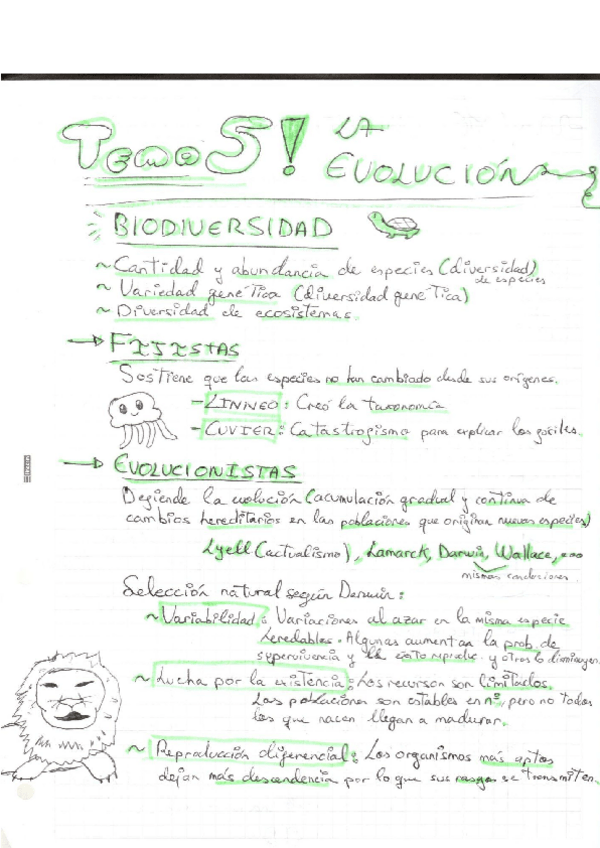 Tema 5! LA
EVOLUCIÓN
BIODIVERSIDAD
~ Cantidad y abundancia de especies (diversidad)
de especies
~ Variedad genética (diversidad genética)
~ Diversidad de ecosistemas.
→ FIJISTAS
Sostiene que las especies no han cambiado desde sus orígenes.
- LINNEO: Creó la taxonomía
- CUVIER: Catastrofismo para explicar los fósiles.
→ EVOLUCIONISTAS
Defiende la evolución (acumulación gradual y continua de
cambios hereditarios en las poblaciones que originan nuevas especies)
Lyell (actualismo), Lamarck, Darwin, Wallace, ...
mismas conclusiones
Selección natural según Darwin:
~ Variabilidad: Variaciones al azar en la misma especie
heredables. Algunas aumentan la prob. de
supervivencia y el éxito reprodu. y otras lo disminuyen.
~ Lucha por la existencia: Los recursos son limitados.
Las poblaciones son estables en nº, pero no todos
los que nacen llegan a madurar.
~ Reproducción diferencial: Los organismos más aptos
dejan más descendencia por lo que sus rasgos se transmiten.